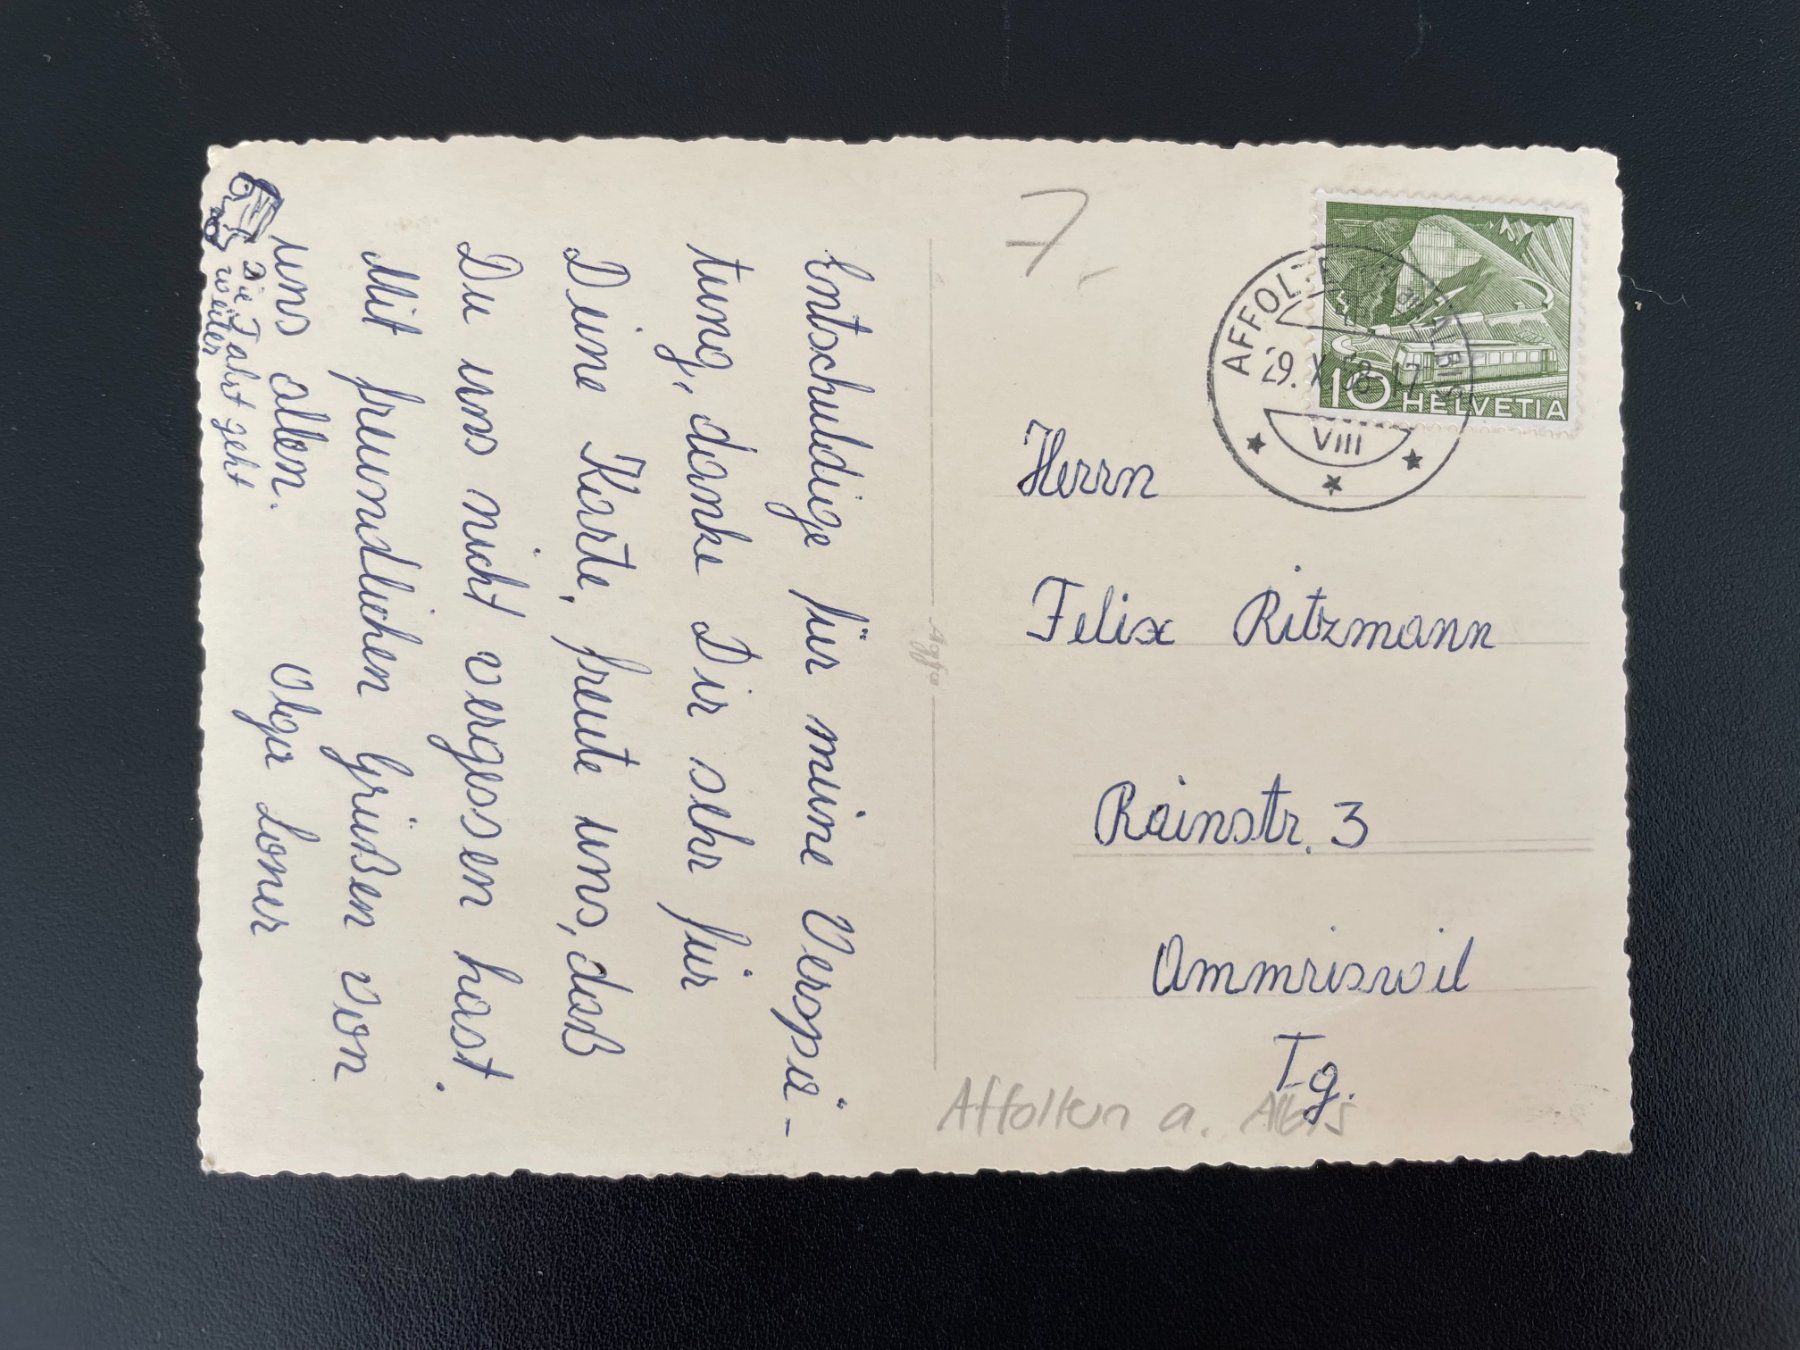 Entschuldige für meine Verspä-
tung, danke Dir sehr für
Deine Karte, freute uns, daß
Du uns nicht vergessen hast.
Mit freundlichen Grüßen von
uns allen.
Olga Loner
Die Fahrt geht
weiter
7.-
AFFOLTERN am ALBIS
29.X.58-17
VIII
10 HELVETIA
Herrn
Felix Ritzmann
Rainstr. 3
Ammriswil
Tg.
Affoltern a. Albis
Agfa